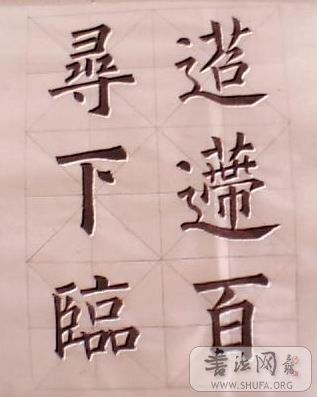 迢遰百
尋下臨
書法网
WWW.SHUFA.ORG